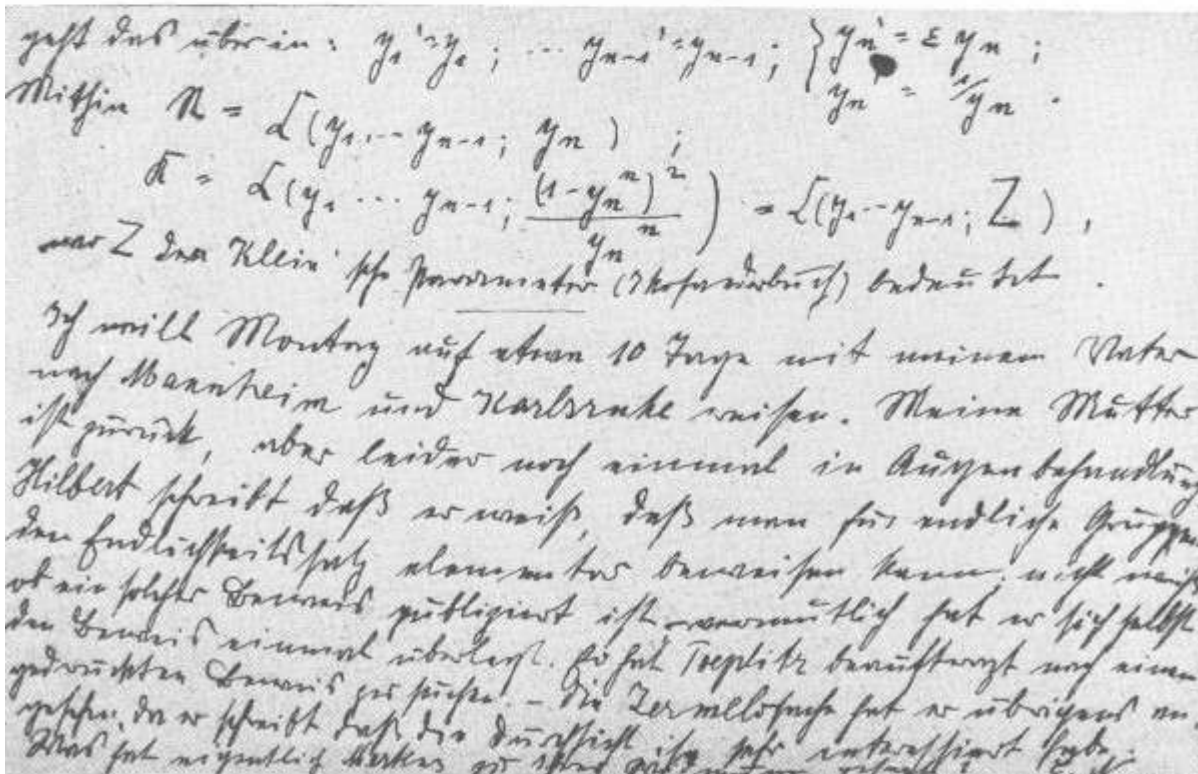 geht das über in: y₁' = y₁; ... yₙ₋₁' = yₙ₋₁; { yₙ' = ε yₙ;
yₙ' = 1/yₙ.
Mithin R = L(y₁ ... yₙ₋₁; yₙ);
K = L(y₁ ... yₙ₋₁; (1-yₙⁿ)²/yₙⁿ) = L(y₁ ... yₙ₋₁; Z),
wo Z den Klein'sche Parameter (Ikosaederbuch) bedeutet.
Ich will Montag auf etwa 10 Tage mit meinem Vater
nach Mannheim und Karlsruhe reisen. Meine Mutter
ist zurück, aber leider noch einmal in Augenbehandlung
Hilbert schreibt daß er weiß, daß man für endliche Gruppen
den Endlichkeitssatz elementar beweisen kann; nicht weiß
ob ein solcher Beweis publiziert ist vermutlich hat er sich selbst
den Beweis einmal überlegt. Er hat Toeplitz beauftragt nach einem
gedruckten Beweis zu suchen. – Die Zermelosache hat er übrigens an
gesehen, da er schreibt daß die Durchsicht ihn sehr interessiert habe.
Was hat eigentlich